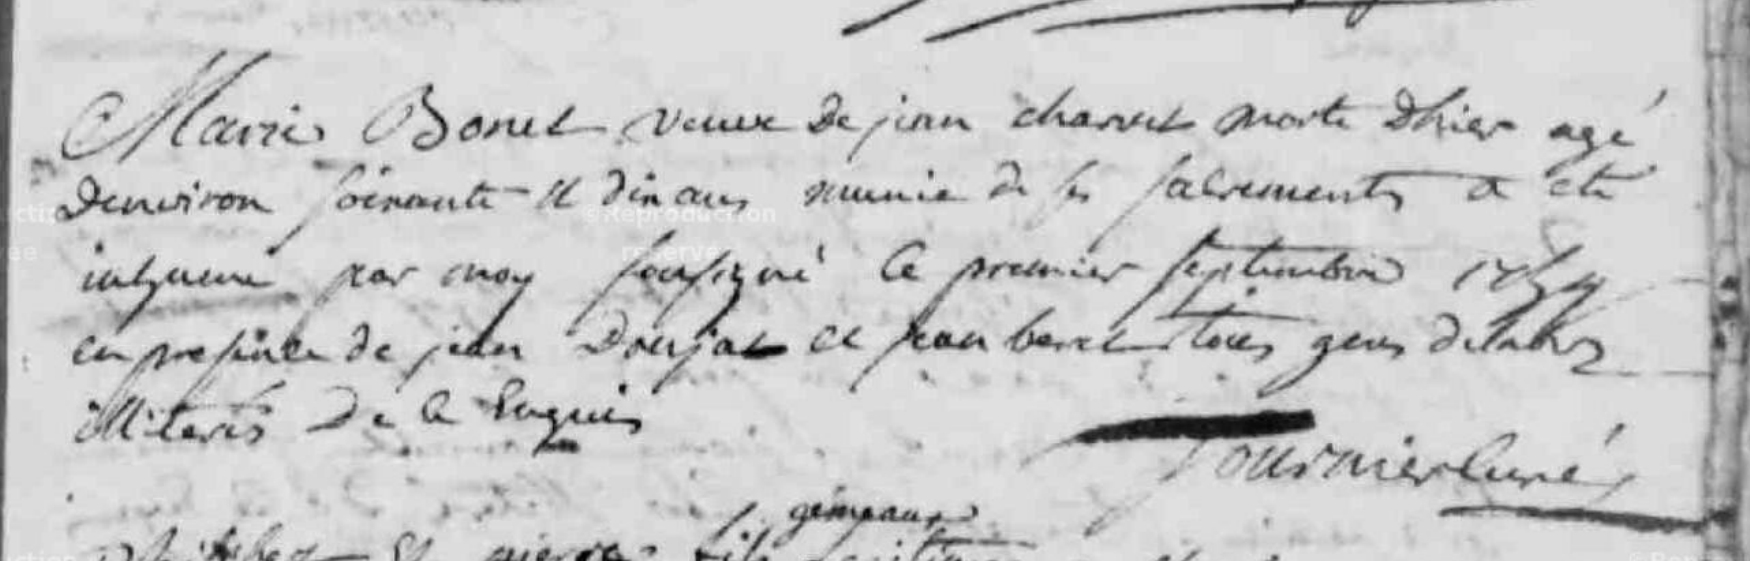 Marie Bonet veuve de jean charvet morte dhier agé
denviron soixante et dix ans munie de ses sacrements a été
inhumee par moy soussigné le premier septembre
en presence de jean Doujat et jean beret tous gens de labr
illiterés de ce enquis
fournier Curé
gemeaux
et pierre fils